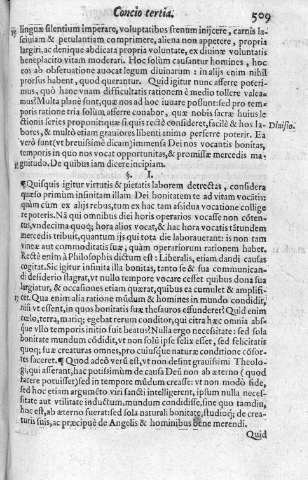 Concio tertia. 509
linguæ silentium imperare, voluptatibus frenum inijcere, carnis lasciuiam & petulantiam comprimere, aliena non appetere, propria
largiri, ac denique abdicata propria voluntate, ex diuinæ voluntatis
beneplacito vitam moderari. Hoc solùm causantur homines, hoc
eos ab obseruatione auocat legum diuinarum: in alijs enim nihil
prorsus habent, quod querantur. Quid igitur nunc afferre poterimus, quò hanc vnam difficultatis rationem è medio tollere valeamus? Multa planè sunt, quæ nos ad hoc iuuare possunt: sed pro temporis ratione ea solùm afferre conabor, quæ nobis sacræ huius lectionis series proponit: quæ si quis rectè inspiciat, facilè & hos labores, & multò etiam grauiores libenti animo perferre poterit. Ea
verò sunt (vt breuissimè dicam) immensa Dei nos vocantis bonitas,
temporis in quo nos vocat opportunitas, & promissæ mercedis magnitudo. De quibus iam dicere incipiam.
Diuisio.
§. I.
¶ Quisquis igitur virtutis & pietatis laborem detrectas, considera
quæso primùm infinitam illam Dei bonitatem te ad vitam vocantis
quàm cùm ex alijs rebus, tum ex hac tam assidua vocatione collige
re poteris. Nã qui omnibus diei horis operarios vocasse non cõtentus, vndecima quoq; hora vocat, & hac hora vocatis tãtundem
mercedis tribuit, quantum ijs qui tota die laborauerant: is non tam
vineæ aut commoditatis suæ, quàm operariorum rationem habet.
Rectè enim à Philosophis dictum est: Liberalis, etiam dandi causas
cogitat. Sic igitur infinita illa bonitas, tanto se & sua communicandi desiderio flagrat, vt nullo tempore vocare cesset quibus dona sua
largiatur, & occasiones etiam quærat, quibus ea cumulet & amplificet. Qua enim alia ratione mũdum & homines in mundo condidit,
nisi vt essent, in quos bonitatis suæ thesauros effunderet? Quid enim
cœlo, terra, mari; egebat rerum conditor, qui citra hæc omnia absque vllo temporis initio fuit beatus? Nulla ergo necessitate: sed sola
bonitate mundum cõdidit, vt non solũ ipse felix esset, sed felicitatis
quoq; suæ creaturas omnes, pro cuiusque naturæ conditione cõsortes faceret. ¶ Quod adeò verũ est, vt non desint grauissimi Theologi, qui asserant, hac potissimùm de causa Deũ non ab æterno (quod
facere potuisset) sed in tempore mũdum creasse: vt non modo fide,
sed hoc etiam argumẽto viri sancti intelligerent, ipsum nulla necessitate aut vtilitate inductum, mundum condidisse, sine quo tamdiu,
hoc est, ab æterno fuerat: sed sola naturali bonitate, studioq; de creaturis suis, ac præcipuè de Angelis & hominibus bene merendi.
Quid